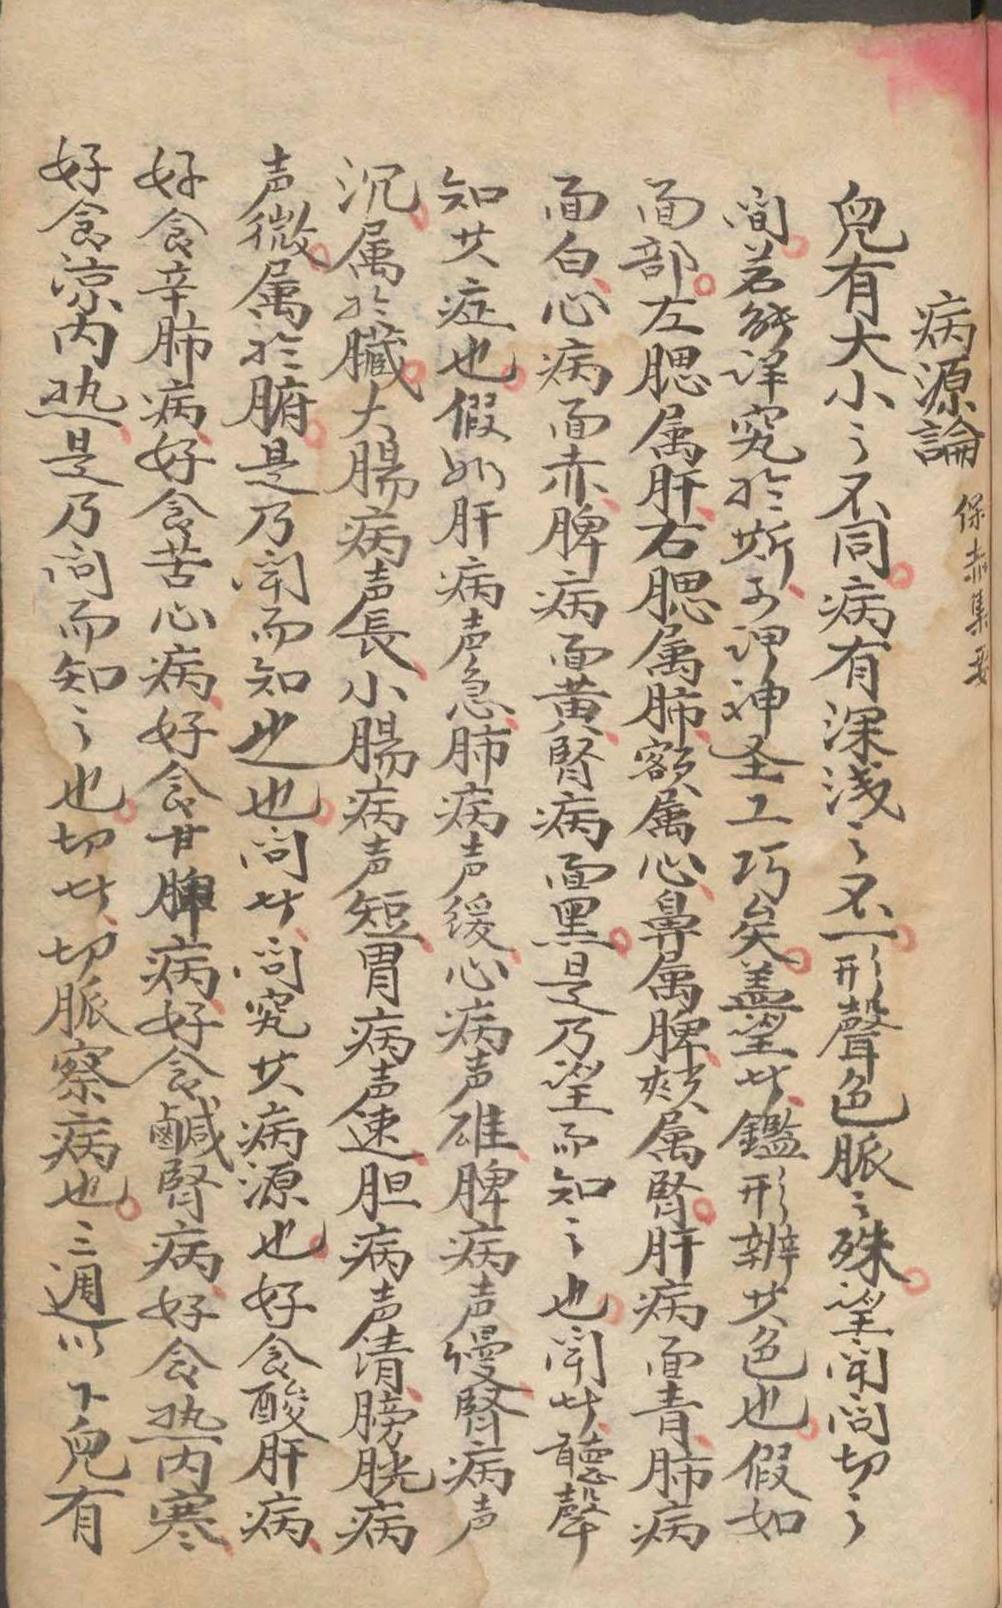 病源論
保赤集要
皃有大小之不同病有深浅之不一形聲色脈之殊望闻问切之
间若能详究於斯可谓神圣工巧矣盖望者鑑形辨其色也假如
面部左腮属肝右腮属肺额属心鼻属脾颏属腎肝病面青肺病
面白心病面赤脾病面黄腎病面黑是乃望而知之也闻者聽聲
知其症也假如肝病声急肺病声缓心病声雄脾病声慢腎病声
沉属於臓大腸病声長小腸病声短胃病声速胆病声清膀胱病
声微属於腑是乃闻而知之也问者问究其病源也好食酸肝病
好食辛肺病好食苦心病好食甘脾病好食鹹腎病好食热内寒
好食凉内热是乃问而知之也切者切脈察病也三週以下皃有